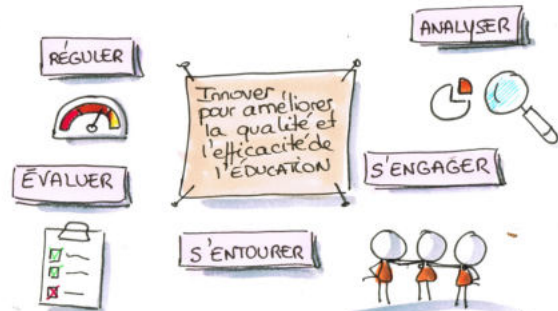 RÉGULER
ANALYSER
Innover
pour améliorer
la qualité et
l'efficacité de
l'ÉDUCATION
ÉVALUER
S'ENGAGER
S'ENTOURER